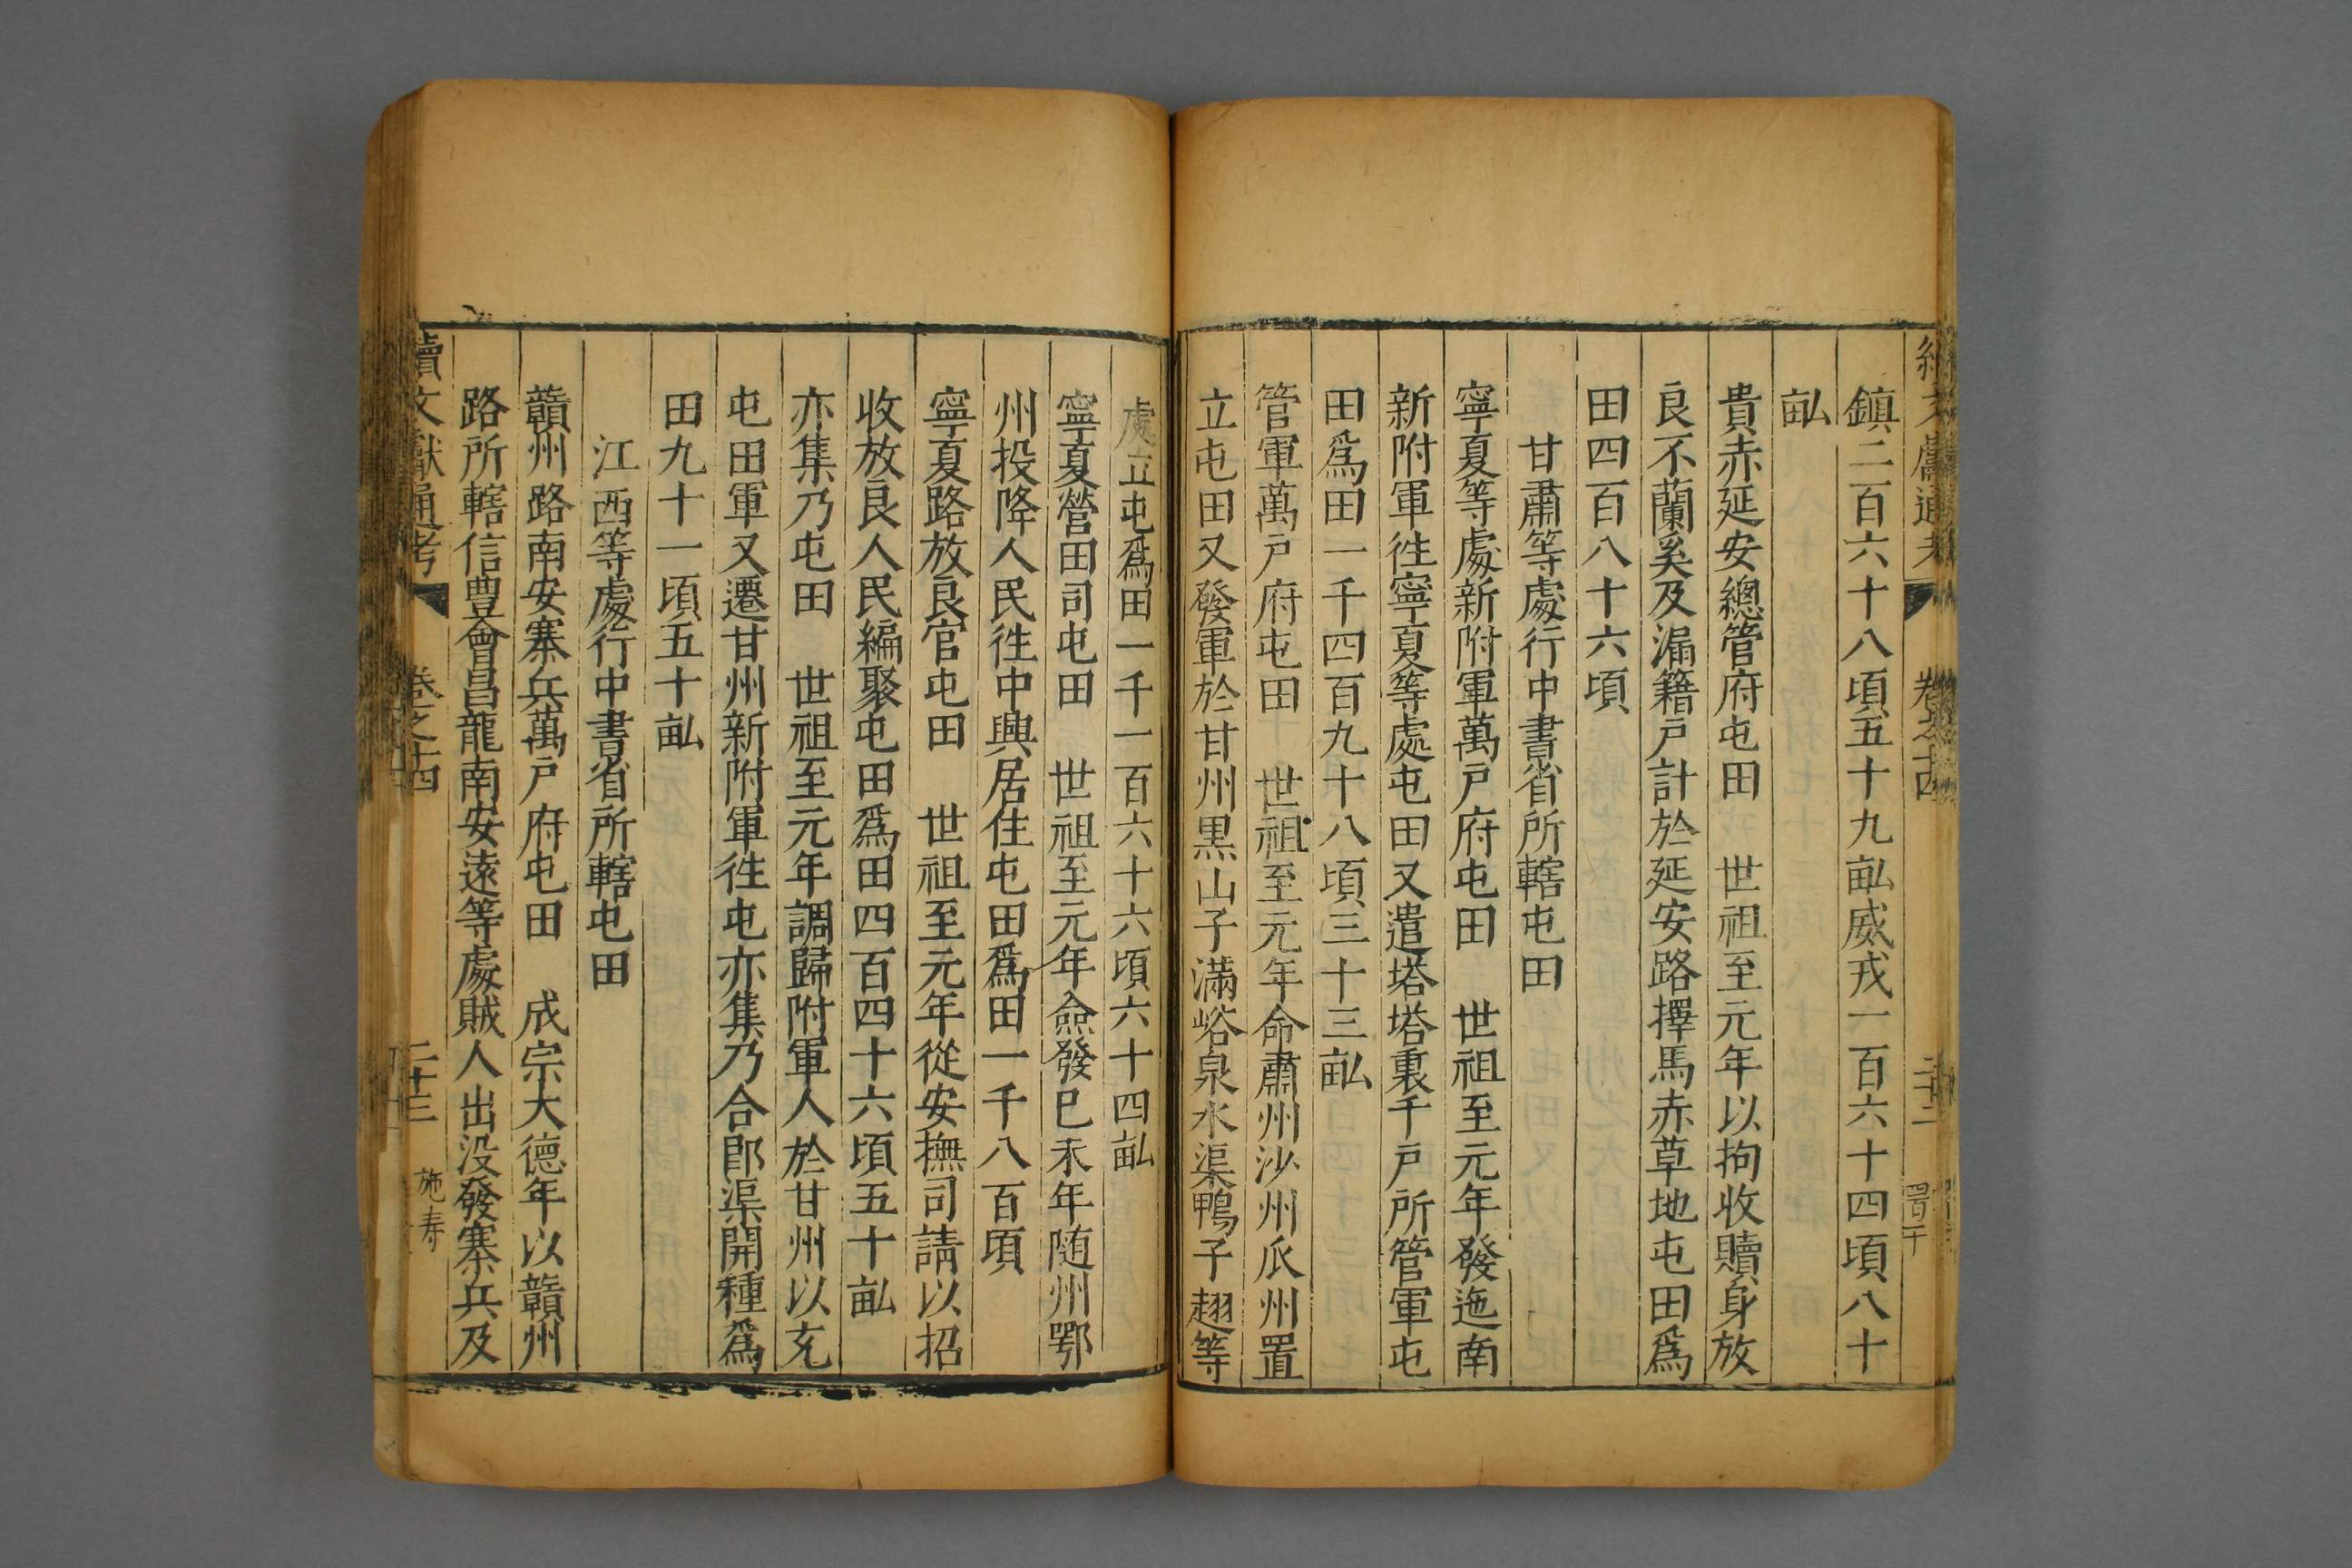 續文獻通考 卷之十四 二十二
鎮二百六十八頃五十九畝威戎一百六十四頃八十
畝
貴赤延安總管府屯田 世祖至元年以拘收贖身放
良不蘭奚及漏籍戶計於延安路擇馬赤草地屯田爲
田四百八十六頃
甘肅等處行中書省所轄屯田
寧夏等處新附軍萬戶府屯田 世祖至元年發迤南
新附軍徃寧夏等處屯田又遣塔塔裏千戶所管軍屯
田爲田一千四百九十八頃三十三畝
管軍萬戶府屯田 世祖至元年命肅州沙州瓜州置
立屯田又發軍於甘州黒山子滿峪泉水渠鴨子翅等
處立屯爲田一千一百六十六頃六十四畝
寧夏營田司屯田 世祖至元年僉發巳未年随州鄂
州投降人民徃中興居住屯田爲田一千八百頃
寧夏路放良官屯田 世祖至元年從安撫司請以招
收放良人民編聚屯田爲田四百四十六頃五十畝
亦集乃屯田 世祖至元年調歸附軍人於甘州以充
屯田軍又遷甘州新附軍徃屯亦集乃合即渠開種爲
田九十一頃五十畝
江西等處行中書省所轄屯田
贛州路南安寨兵萬戶府屯田 成宗大德年以贛州
路所轄信豐會昌龍南安遠等處賊人出没發寨兵及
續文獻通考 卷之十四 二十三 施寿